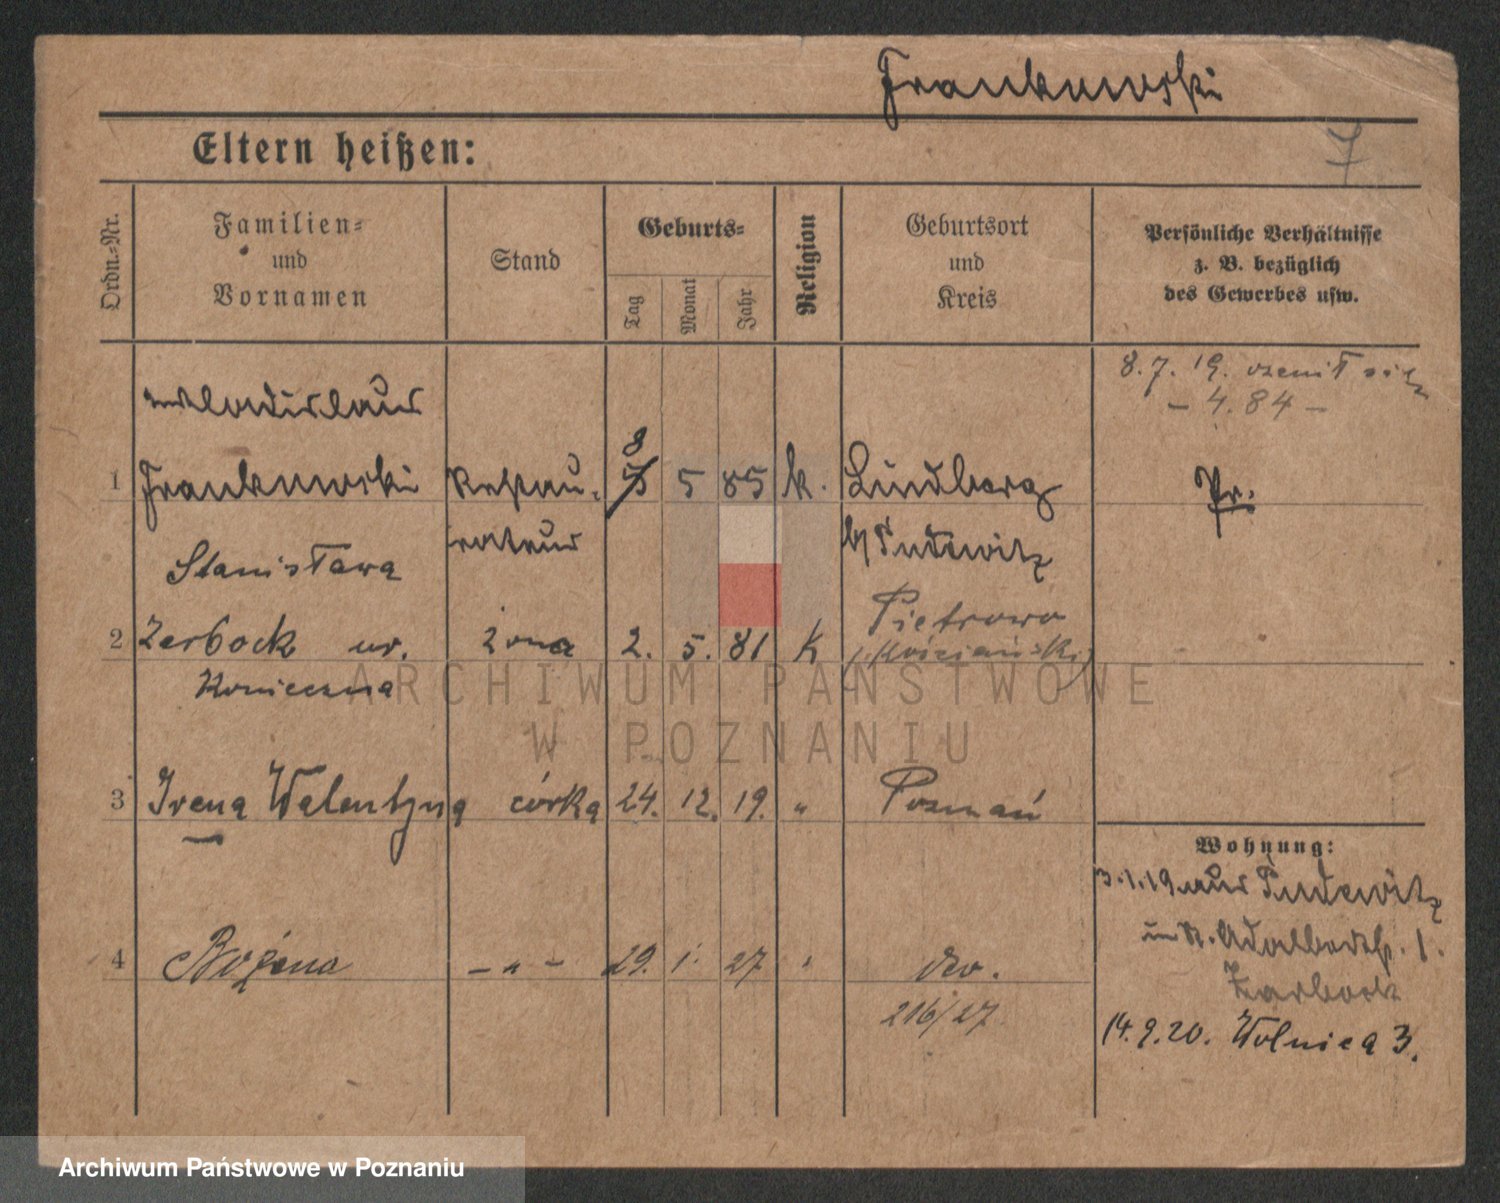 Frankowski
7
Eltern heißen:
Ordn.-Nr.
Familien-
und
Vornamen
Stand
Geburts-
Tag
Monat
Jahr
Religion
Geburtsort
und
Kreis
Persönliche Verhältnisse
z. B. bezüglich
des Gewerbes usw.
8. 7. 19. ożenił się
– 4. 84 –
Wladislaus
8
1 Frankowski Restau- 5 5 85 k. Lindberg Pr.
rateur b/ Pudewitz
Stanisława
Pietrowo
2 Zerbock ur. żona 2. 5. 81 k p. Kościański
Konieczna
3 Irena Walentyna córka 24. 12. 19. " Poznań
Wohnung:
3.1.19 aus Pudewitz
St. Adalbertstr. 1.
4 Bożena – " – 29. 1. 27 " dto.
Zerbock
216/27
14. 9. 20. Wolnica 3.
ARCHIWUM PAŃSTWOWE
W POZNANIU
Archiwum Państwowe w Poznaniu